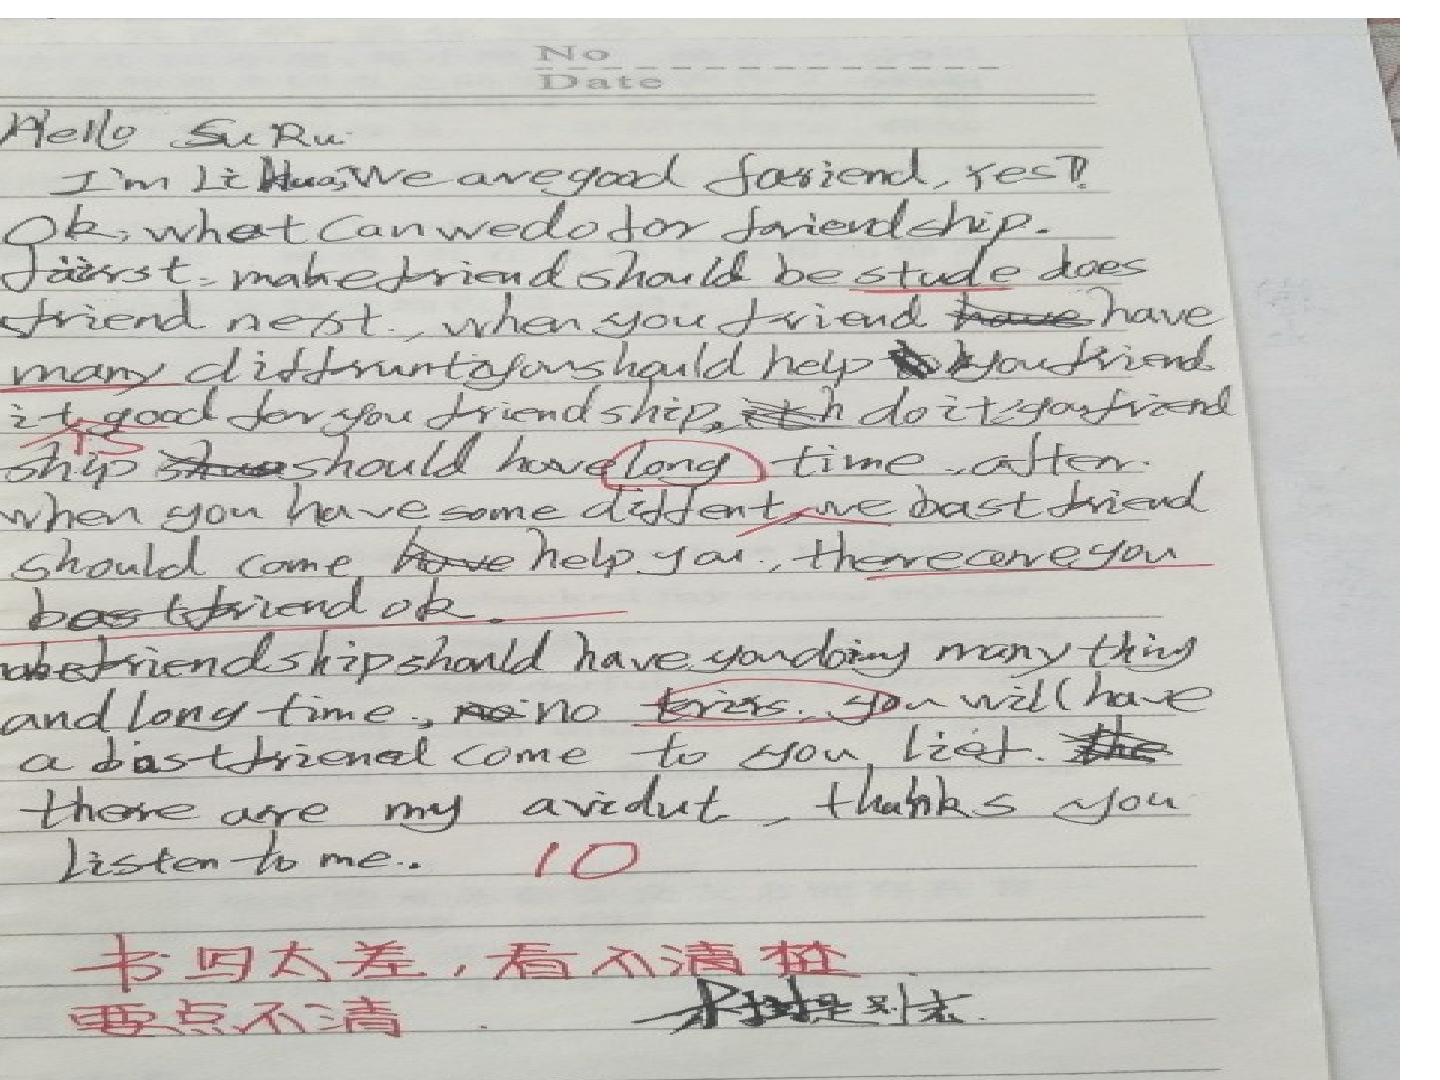 No
Date
Hello Su Ru.
I'm Li Hua, We are good fariend, Yes?
Ok, what Can we do for friendship.
first. make friend should be stude does
friend nest, when you friend have have
many diffrunt you should help you friend
it good for you friendship, do it your friend
is
ship should have long time. after.
when you have some diffent, we bast friend
should come have help you, there are you
bast friend ok.
friendship should have you doing many thing
and long time, no no you will have
a bast friend come to you lief. the
there are my avidut, thanks you
Listen to me..
10
书写太差，看不清楚
要点不清